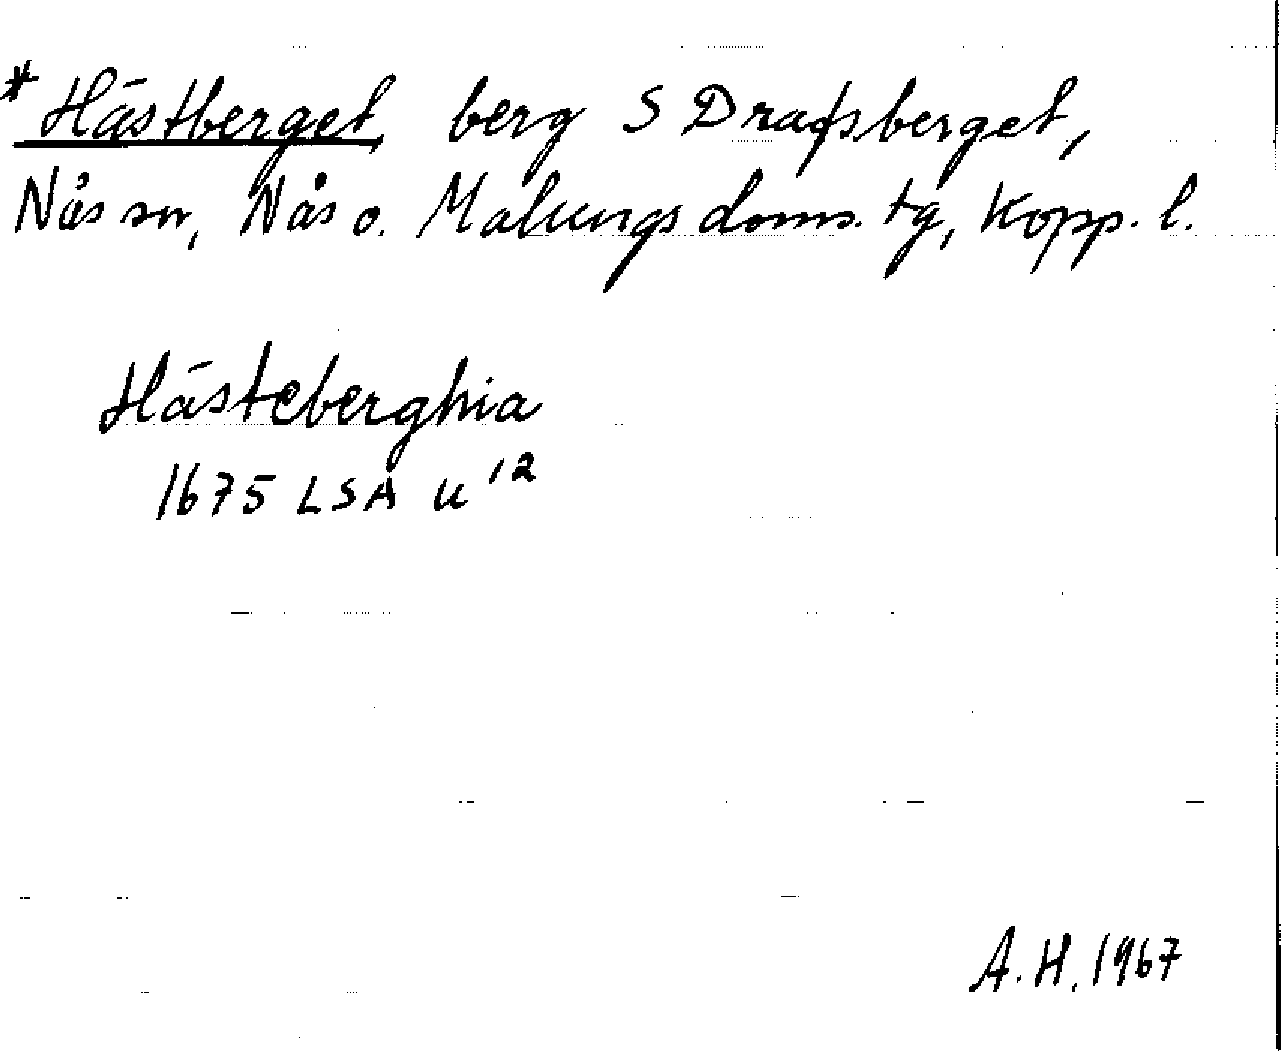 * Hästberget, berg S Drafsberget,
Nås sn, Nås o. Malungs doms. tg, Kopp. l.
Hästeberghia
1675 LSA U 12
A. H. 1967